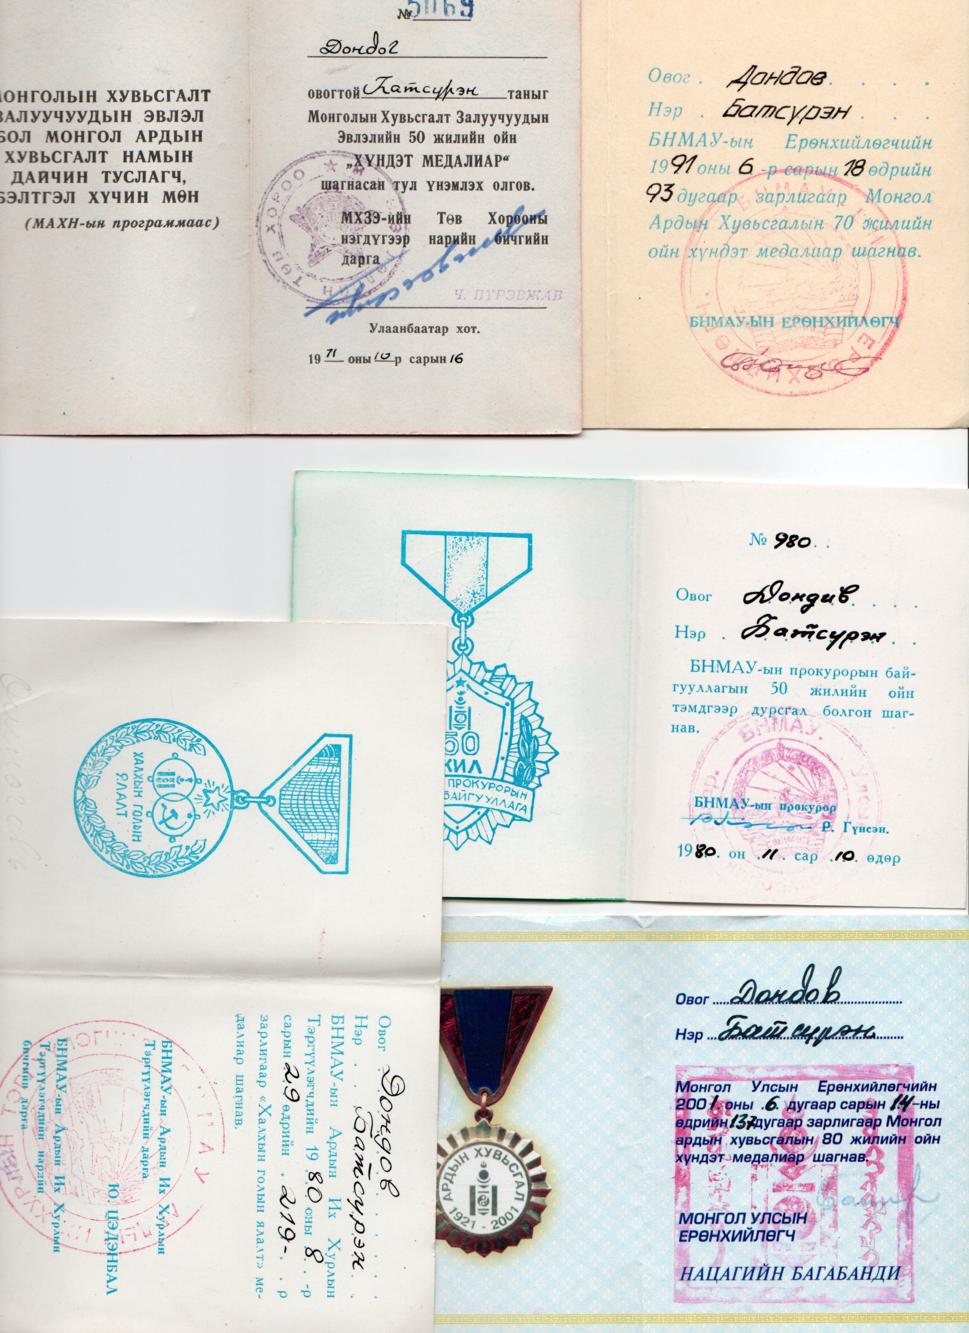 ОНГОЛЫН ХУВЬСГАЛТ
ЗАЛУУЧУУДЫН ЭВЛЭЛ
БОЛ МОНГОЛ АРДЫН
ХУВЬСГАЛТ НАМЫН
ДАЙЧИН ТУСЛАГЧ,
БЭЛТГЭЛ ХҮЧИН МӨН
(МАХН-ын программаас)
№ 5069
Дондог
овогтой Батсүрэн таныг
Монголын Хувьсгалт Залуучуудын
Эвлэлийн 50 жилийн ойн
„ХҮНДЭТ МЕДАЛИАР“
шагнасан тул үнэмлэх олгов.
МХЗЭ-ийн Төв Хорооны
нэгдүгээр нарийн бичгийн
дарга
Ч. ПҮРЭВЖАВ
Улаанбаатар хот.
1971 оны 10-р сарын 16
Овог . Дондов . . . .
Нэр . Батсүрэн . .
БНМАУ-ын Ерөнхийлөгчийн
1991 оны 6-р сарын 18 өдрийн
93 дугаар зарлигаар Монгол
Ардын Хувьсгалын 70 жилийн
ойн хүндэт медалиар шагнав.
БНМАУ-ЫН ЕРӨНХИЙЛӨГЧ
50
ЖИЛ
ПРОКУРОРЫН
БАЙГУУЛЛАГА
№ 980 . .
Овог Дондив . . . .
Нэр . Батсүрэн . .
БНМАУ-ын прокурорын бай-
гууллагын 50 жилийн ойн
тэмдгээр дурсгал болгон шаг-
нав.
БНМАУ-ын прокурор
Р. Гүнсэн.
1980 он .11. сар .10. өдөр
ХАЛХЫН ГОЛЫН
ЯЛАЛТ
Овог Дондов . . .
Нэр . . Батсүрэн
БНМАУ-ын Ардын Их Хурлын
Тэргүүлэгчдийн 1980 оны 8 -р
сарын 29 өдрийн . 219- . р
зарлигаар «Халхын голын ялалт» ме-
далиар шагнав.
БНМАУ-ын Ардын Их Хурлын
Тэргүүлэгчдийн дарга
Ю. ЦЭДЭНБАЛ
БНМАУ-ын Ардын Их Хурлын
Тэргүүлэгчдийн нарийн
бичгийн дарга
АРДЫН ХУВЬСГАЛ
1921 - 2001
Овог Дондов
Нэр Батсүрэн
Монгол Улсын Ерөнхийлөгчийн
2001 оны 6 дугаар сарын 14-ны
өдрийн 137 дугаар зарлигаар Монгол
ардын хувьсгалын 80 жилийн ойн
хүндэт медалиар шагнав.
МОНГОЛ УЛСЫН
ЕРӨНХИЙЛӨГЧ
НАЦАГИЙН БАГАБАНДИ